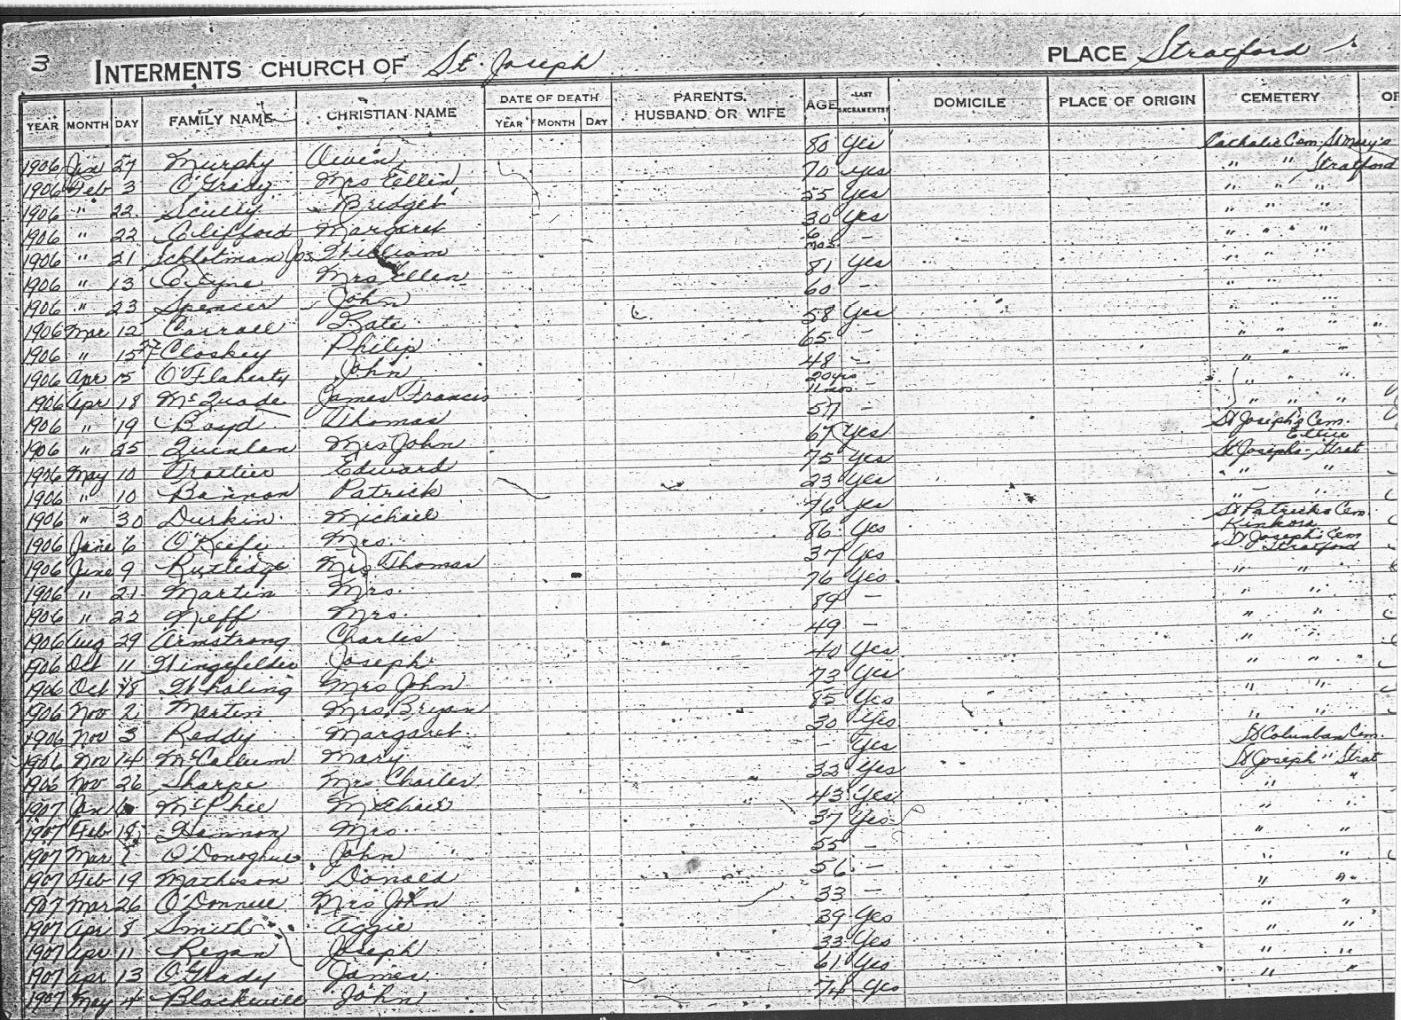 3 INTERMENTS CHURCH OF St. Joseph PLACE Stratford
YEAR MONTH DAY FAMILY NAME CHRISTIAN NAME DATE OF DEATH YEAR MONTH DAY PARENTS, HUSBAND OR WIFE AGE LAST SACRAMENTS? DOMICILE PLACE OF ORIGIN CEMETERY
1906 Jan 27 Murphy Owen 80 Yes Catholic Cem. St Mary's
1906 Feb 3 O'Grady Mrs Ellen 70 yes " " Stratford
1906 " 22 Scully Bridget 55 Yes " " "
1906 " 22 Clifford Margaret 30 Yes " " " "
1906 " 21 Schlotman Jos. William 6 mos – " " "
1906 " 13 Coyne Mrs Ellen 81 Yes " " "
1906 " 23 Spencer John 60 – " " "
1906 Mar 12 Carroll Kate 58 Yes " " "
1906 " 15 McCloskey Philip 65 – " " "
1906 Apr 5 O'Flaherty John 48 – " " "
1906 Apr 18 McQuade James Francis 20 yrs 11 mos – " " "
1906 " 19 Boyd Thomas 57 – " " "
1906 " 25 Quinlan Mrs John 67 Yes St Joseph's Cem.
1906 May 10 Trottier Edward 75 Yes St Josephs – Strat
1906 " 10 Bannon Patrick 23 Yes " "
1906 " 30 Durkin Michael 76 Yes " "
1906 June 6 O'Keefe Mrs. 86 Yes St Patricks Cem. Kinkora
1906 June 9 Rutledge Mrs Thomas 37 Yes St Joseph's Cem Stratford
1906 " 21 Martin Mrs. 76 Yes " "
1906 " 22 Neff Mrs. 89 – " "
1906 Aug 29 Armstrong Charles 49 – " "
1906 Oct 11 Wingefelder Joseph 40 Yes " "
1906 Oct 18 Whaling Mrs John 73 Yes " "
1906 Nov 2 Martin Mrs Bryan 85 Yes " "
1906 Nov 3 Reddy Margaret 30 Yes " "
1906 Nov 14 McCallum Mary – Yes St Columban Cem.
1906 Nov 26 Sharpe Mrs Charles 32 Yes St Joseph" Strat
1907 Jan 6 McPhee Michael 43 Yes " "
1907 Feb 18 Hannon Mrs. 37 Yes " "
1907 Mar 7 O'Donoghue John 55 – " "
1907 Feb 19 Matheson Donald 56 – " "
1907 Mar 26 O'Donnell Mrs John 33 – " "
1907 Apr 8 Smith Aggie 39 Yes " "
1907 Apr 11 Regan Joseph 33 Yes " "
1907 Apr 13 O'Grady James 61 Yes " "
1907 May 4 Blackwell John 74 Yes